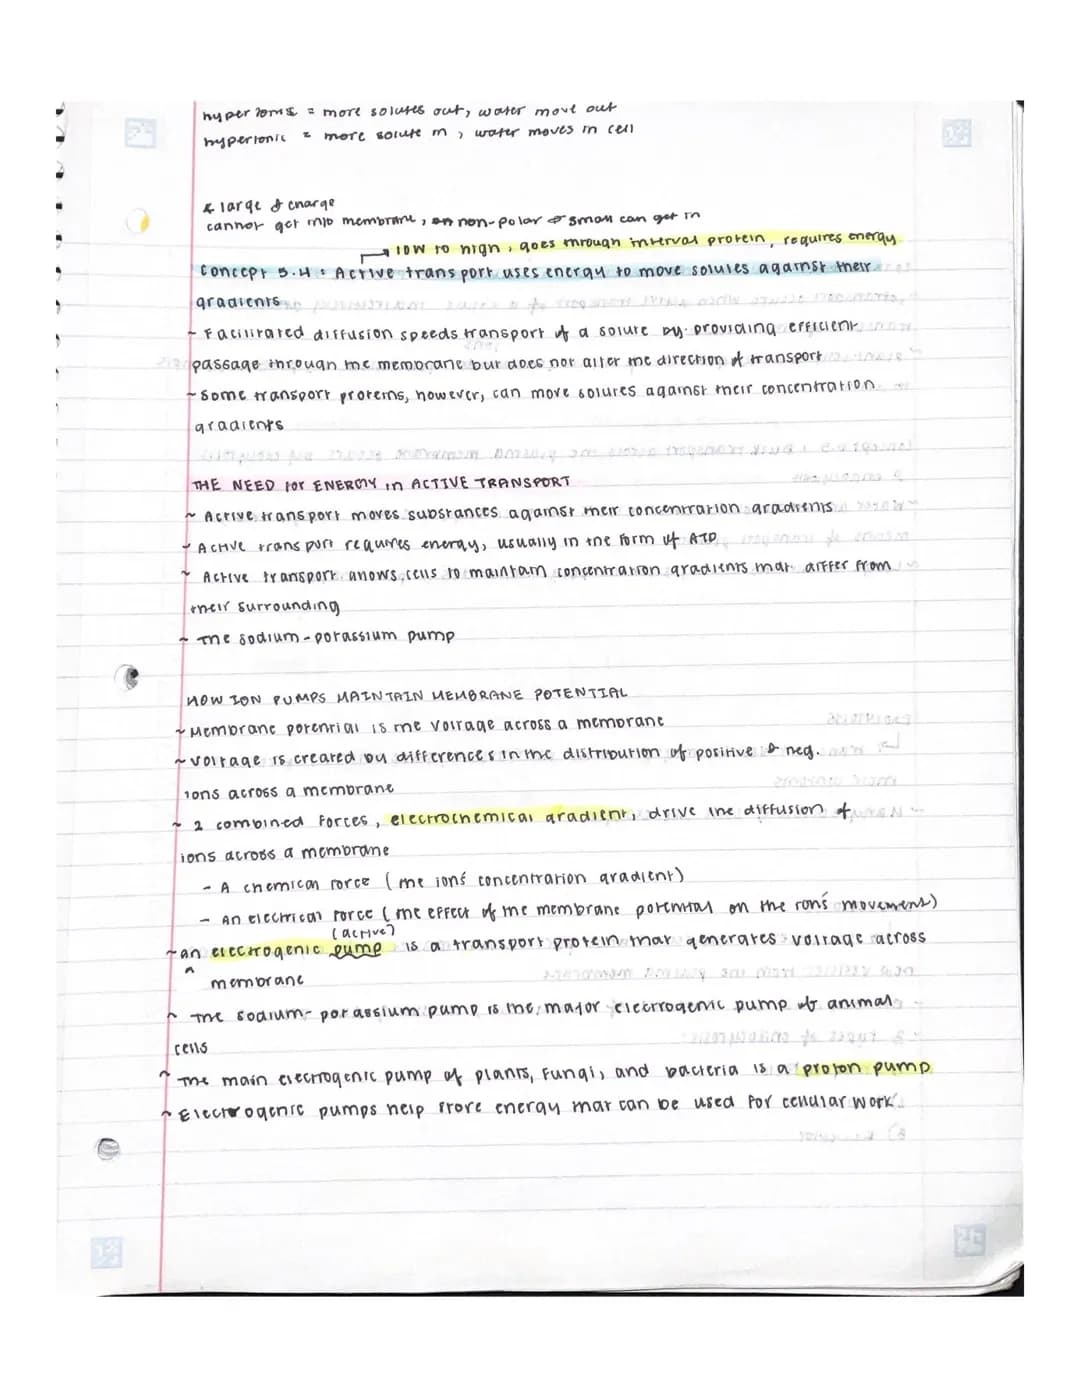 hypertonic = more solutes out, water move out
hypertonic = more solute in, water moves in cell
& large & charge
cannot get into membrane, non-polar & small can get in
low to high, goes through interval protein, requires energy
Concept 5.4: Active transport uses energy to move solutes against their
gradients
- Facilitated diffusion speeds transport of a solute by providing efficient
passage through the membrane but does not alter the direction of transport
- Some transport proteins, however, can move solutes against their concentration
gradients
THE NEED for ENERGY in ACTIVE TRANSPORT
~ Active transport moves substances against their concentration gradients
~ Active transport requires energy, usually in the form of ATP
~ Active transport allows cells to maintain concentration gradients that differ from
their surrounding
~ The sodium-potassium pump
HOW ION PUMPS MAINTAIN MEMBRANE POTENTIAL
~ Membrane potential is the voltage across a membrane
~ Voltage is created by differences in the distribution of positive & neg.
ions across a membrane
~ 2 combined forces, electrochemical gradient, drive the diffusion of
ions across a membrane
- A chemical force (the ion's concentration gradient)
- An electrical force (the effect of the membrane potential on the ion's movement)
(active)
~ an electrogenic pump is a transport protein that generates voltage across
^ membrane
~ The sodium-potassium pump is the major electrogenic pump of animal
cells
~ The main electrogenic pump of plants, fungi, and bacteria is a proton pump
~ Electrogenic pumps help store energy that can be used for cellular work